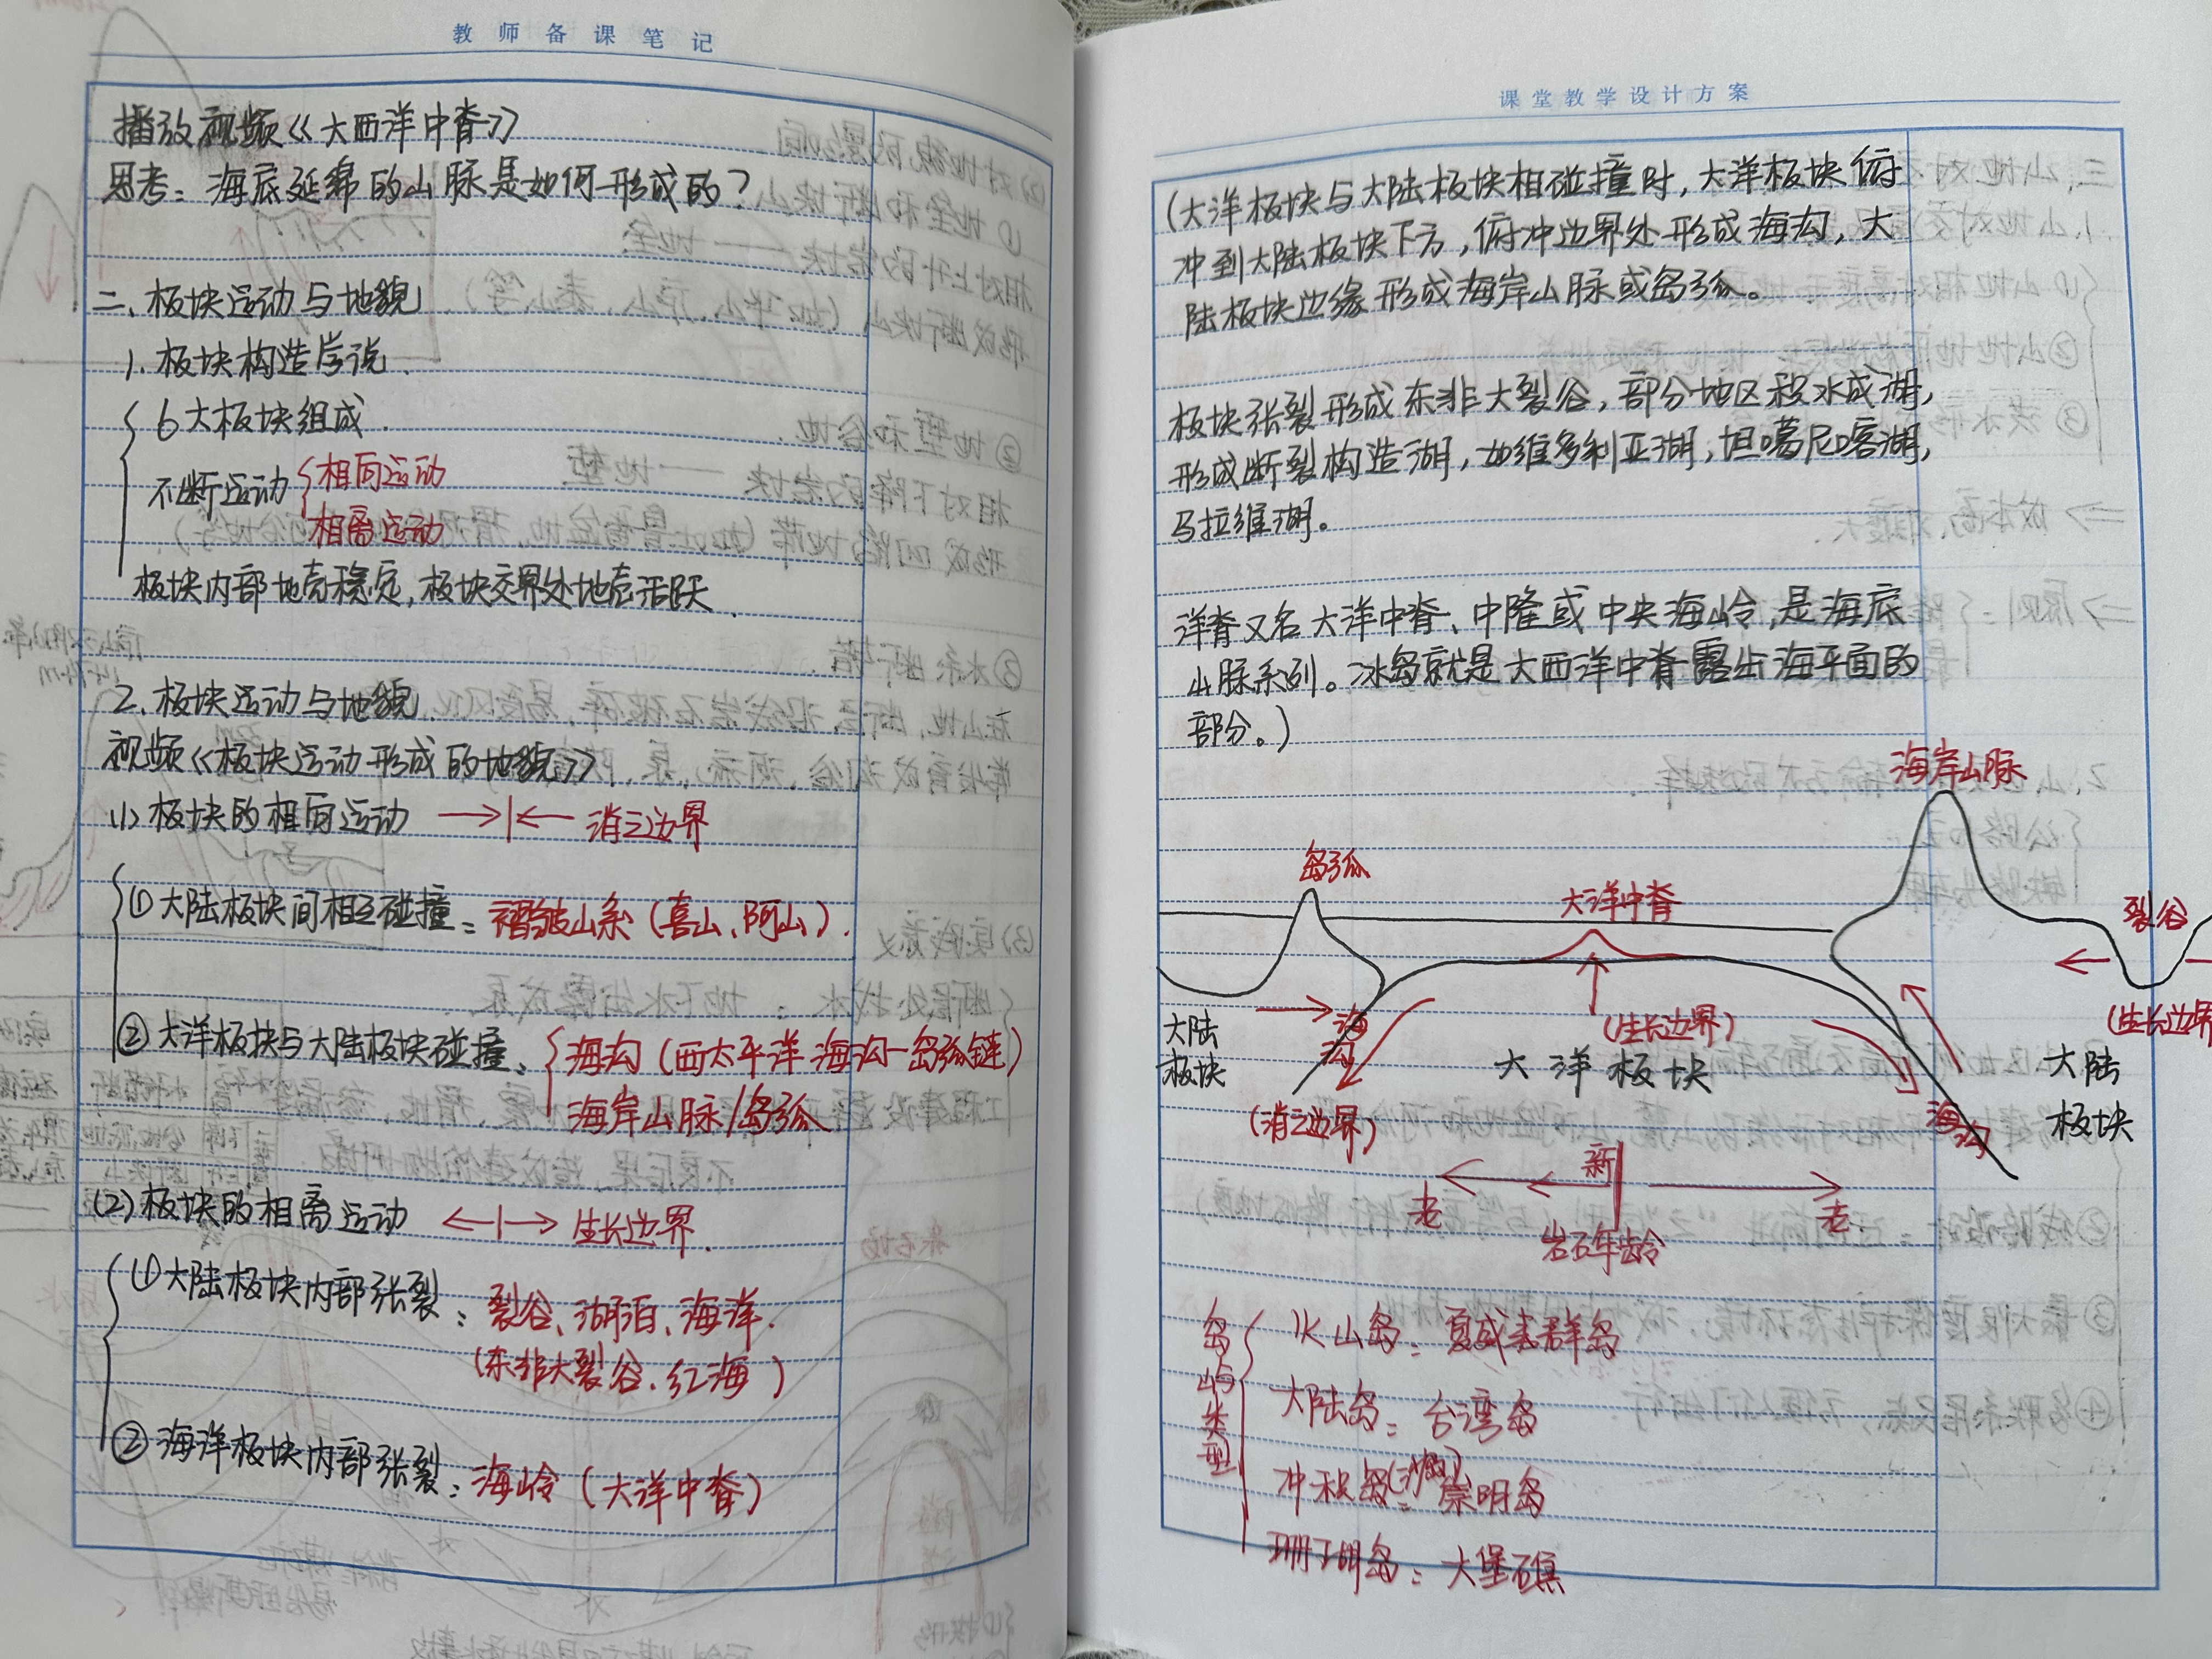 教师备课笔记
播放视频《大西洋中脊》
思考：海底延绵的山脉是如何形成的？
二、板块运动与地貌
1. 板块构造学说.
6大板块组成.
不断运动
相向运动
相离运动
板块内部地壳稳定，板块交界处地壳活跃.
2. 板块运动与地貌.
视频《板块运动形成的地貌》
(1) 板块的相向运动 →|← 消亡边界
①大陆板块间相互碰撞：褶皱山系（喜山、阿山）.
②大洋板块与大陆板块碰撞：
海沟（西太平洋海沟-岛弧链）
海岸山脉/岛弧
(2) 板块的相离运动 ←|→ 生长边界.
①大陆板块内部张裂：裂谷、湖泊、海洋.
（东非大裂谷、红海）
②海洋板块内部张裂：海岭（大洋中脊）
课堂教学设计方案
（大洋板块与大陆板块相碰撞时，大洋板块俯
冲到大陆板块下方，俯冲边界处形成海沟，大
陆板块边缘形成海岸山脉或岛弧。
板块张裂形成东非大裂谷，部分地区积水成湖，
形成断裂构造湖，如维多利亚湖，坦噶尼喀湖，
马拉维湖。
洋脊又名大洋中脊、中隆或中央海岭，是海底
山脉系列。冰岛就是大西洋中脊露出海平面的
部分。）
海岸山脉
岛弧
大洋中脊
裂谷
大陆
板块
海沟
(生长边界)
(生长边界
大洋板块
大陆
板块
(消亡边界)
海沟
新
老
老
岩石年龄
岛屿类型
火山岛：夏威夷群岛
大陆岛：台湾岛
冲积岛(沙岛)：崇明岛
珊瑚岛：大堡礁